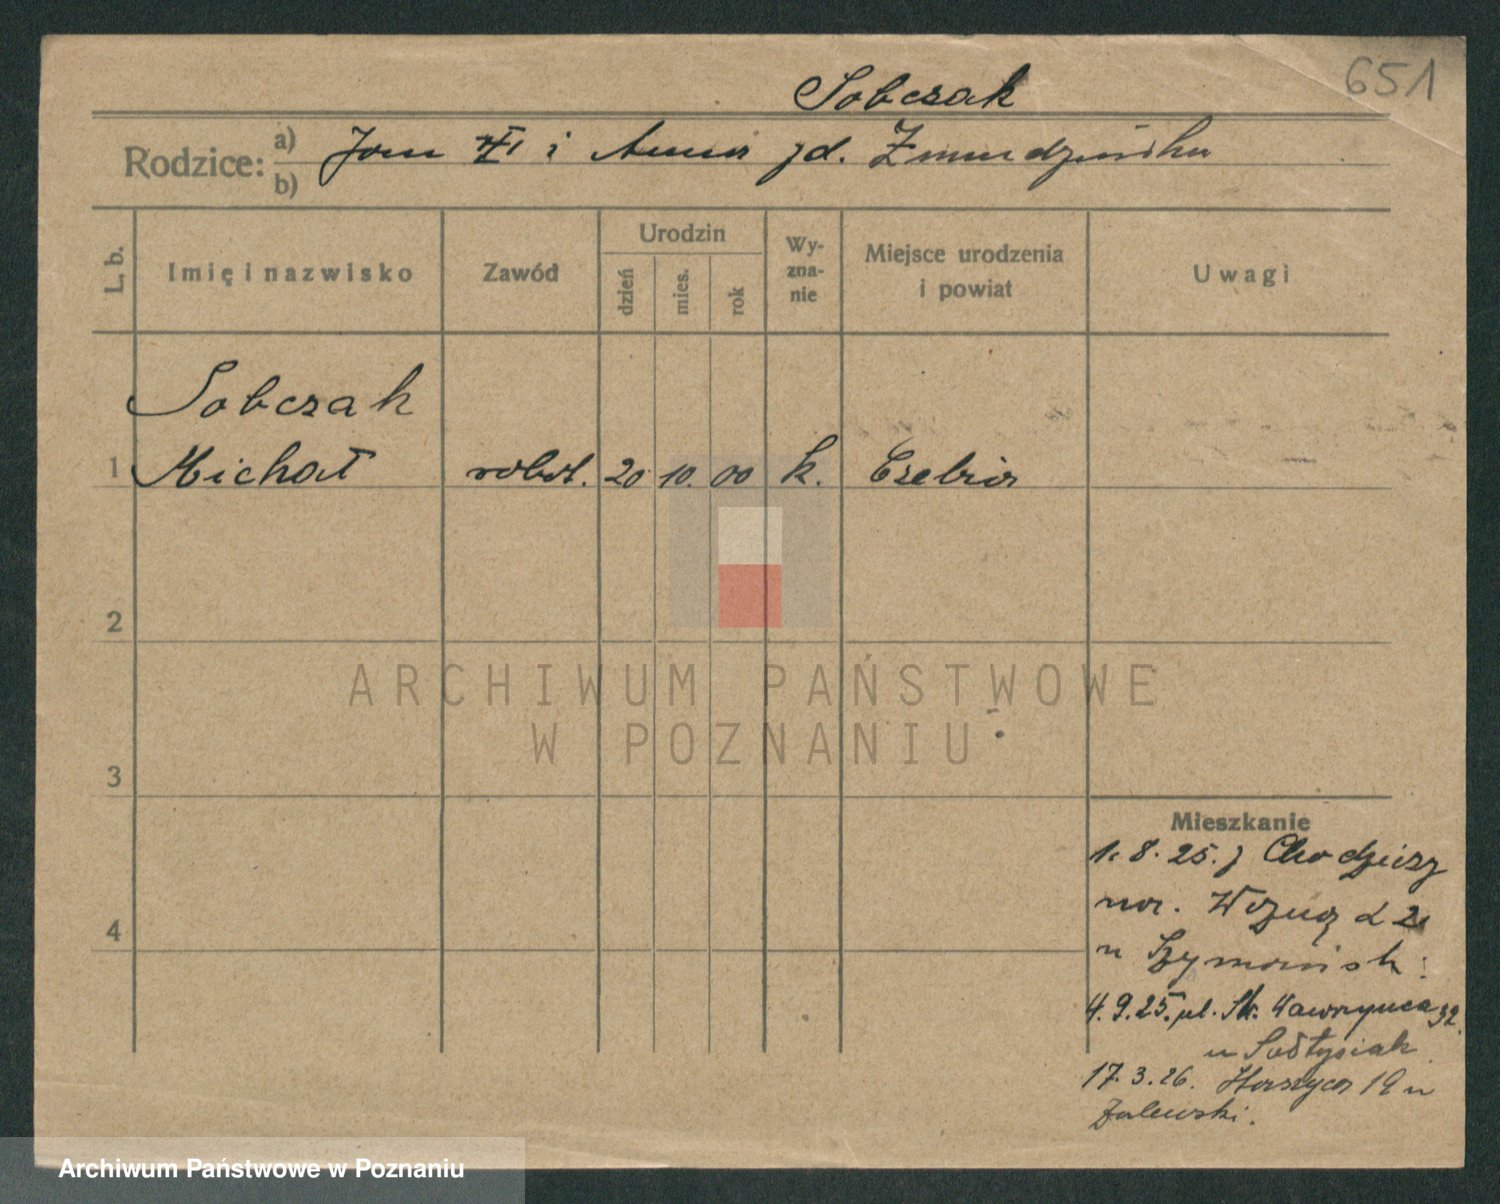 651
Sobczak
Rodzice: a) b) Jan i Anna zd.
L. b. Imię i nazwisko Zawód Urodzin dzień mies. rok Wy-zna-nie Miejsce urodzenia i powiat Uwagi
Sobczak
1 Michał robot. 20 10. 00 k.
2
ARCHIWUM PAŃSTWOWE
W POZNANIU
3
Mieszkanie
1. 8. 25. z Chodzieży
4
u Szymańsk.
4. 9. 25. ul. Św. Wawrzyńca 32.
u Sołtysiak
17. 3. 26. 19 u
Zalewski.
Archiwum Państwowe w Poznaniu